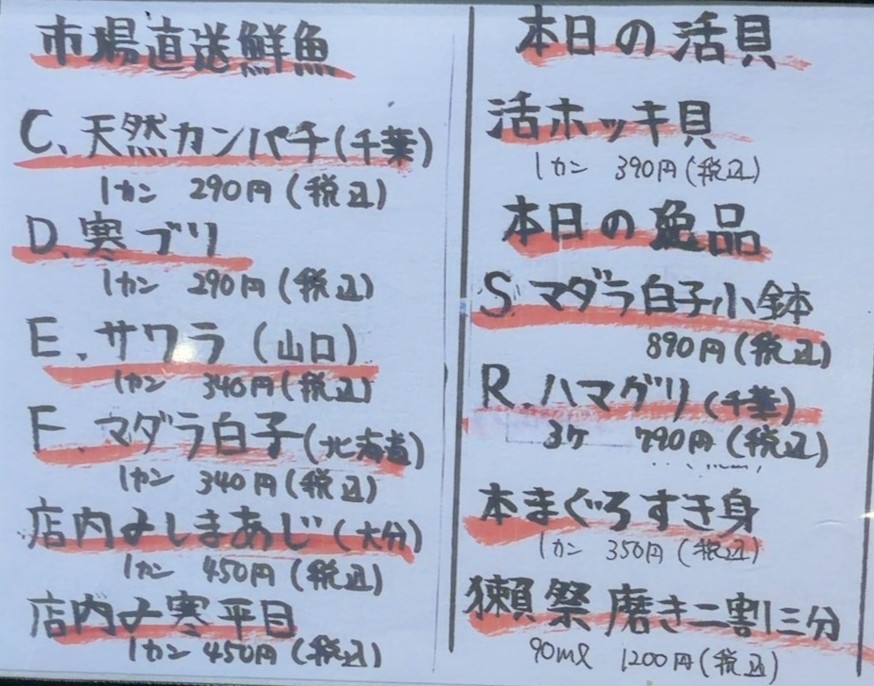 市場直送鮮魚
C、天然カンパチ(千葉)
1カン 290円(税込)
D、寒ブリ
1カン 290円(税込)
E、サワラ(山口)
1カン 340円(税込)
F、マダラ白子(北海道)
1カン 340円(税込)
店内〆しまあじ(大分)
1カン 450円(税込)
店内〆寒平目
1カン 450円(税込)
本日の活貝
活ホッキ貝
1カン 390円(税込)
本日の逸品
S、マダラ白子小鉢
890円(税込)
R、ハマグリ(千葉)
3ケ 790円(税込)
本まぐろすき身
1カン 350円(税込)
獺祭 磨き二割三分
90ml 1200円(税込)